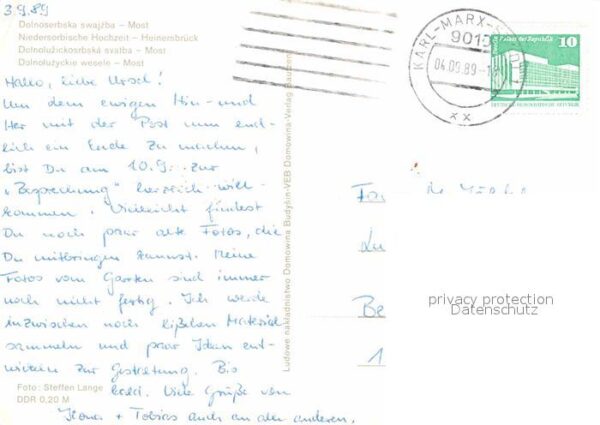 3.9.89
Dolnoserbska swajźba – Most
Niedersorbische Hochzeit – Heinersbrück
Dolnolužickoserbska svatba – Most
Dolnołużyckie wesele – Most
Hallo, liebe Ursel!
Um dem ewigen Hin- und
Her mit der Post nun end-
lich ein Ende zu machen,
bist Du am 10.9. zur
„Besprechung" herzlich will-
kommen. Vielleicht findest
Du noch paar alte Fotos, die
Du mitbringen kannst. Meine
Fotos vom Garten sind immer
noch nicht fertig. Ich werde
inzwischen noch bißchen Material
sammeln und paar Ideen ent-
wickeln zur Gestaltung. Bis
bald. Viele Grüße von
Ilona + Tobias auch an alle anderen.
Foto: Steffen Lange
DDR 0,20 M
Ludowe nakładnistwo Domowina Budyšin · VEB Domowina-Verlag Bautzen
KARL-MARX-STADT
9010
04.09.89
XX
Palast der Republik
10
DEUTSCHE DEMOKRATISCHE REPUBLIK
Be
1
privacy protection
Datenschutz